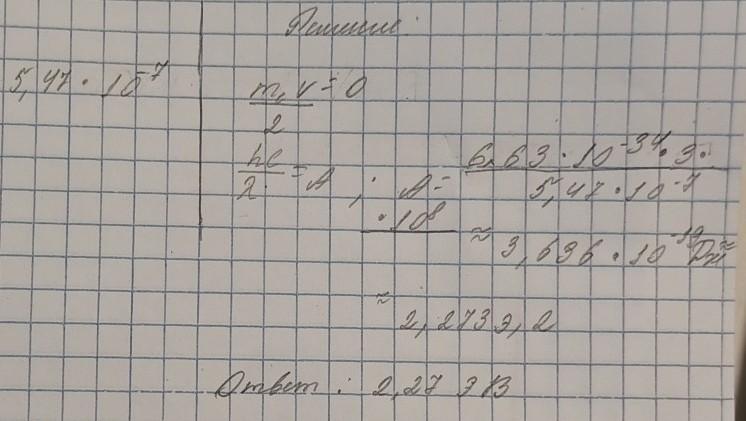 Решение:
5,47 · 10⁻⁷
m,v = 0
2
hc
λ = A ; A = 6,63 · 10⁻³⁴ · 3 ·
5,47 · 10⁻⁷
· 10⁸
≈ 3,636 · 10⁻¹⁹ Дж ≈
≈ 2,273 э, 2
Ответ : 2,27 эВ